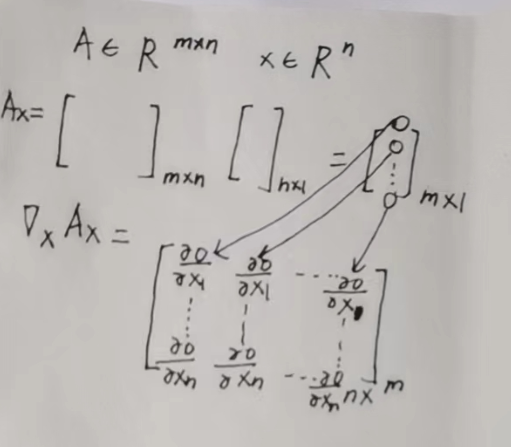 A ∈ R^{m×n} x ∈ R^n
Ax = [ ]_{m×n} [ ]_{n×1} = [○ ○ ⋮ ○]_{m×1}
∇_x Ax =
[ ∂○/∂x_1 ∂○/∂x_1 ---- ∂○/∂x_1
⋮ ⋮ ⋮
∂○/∂x_n ∂○/∂x_n ---- ∂○/∂x_n ]_{n×m}